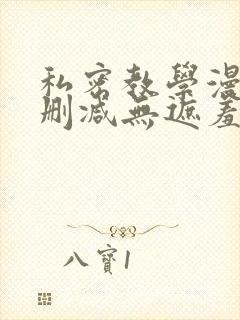 私密教學漫
刪減無遮羞
八寶1